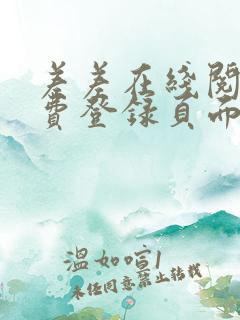 羞羞在线阅
费登录页面
温如喧1
未经同意禁止转载